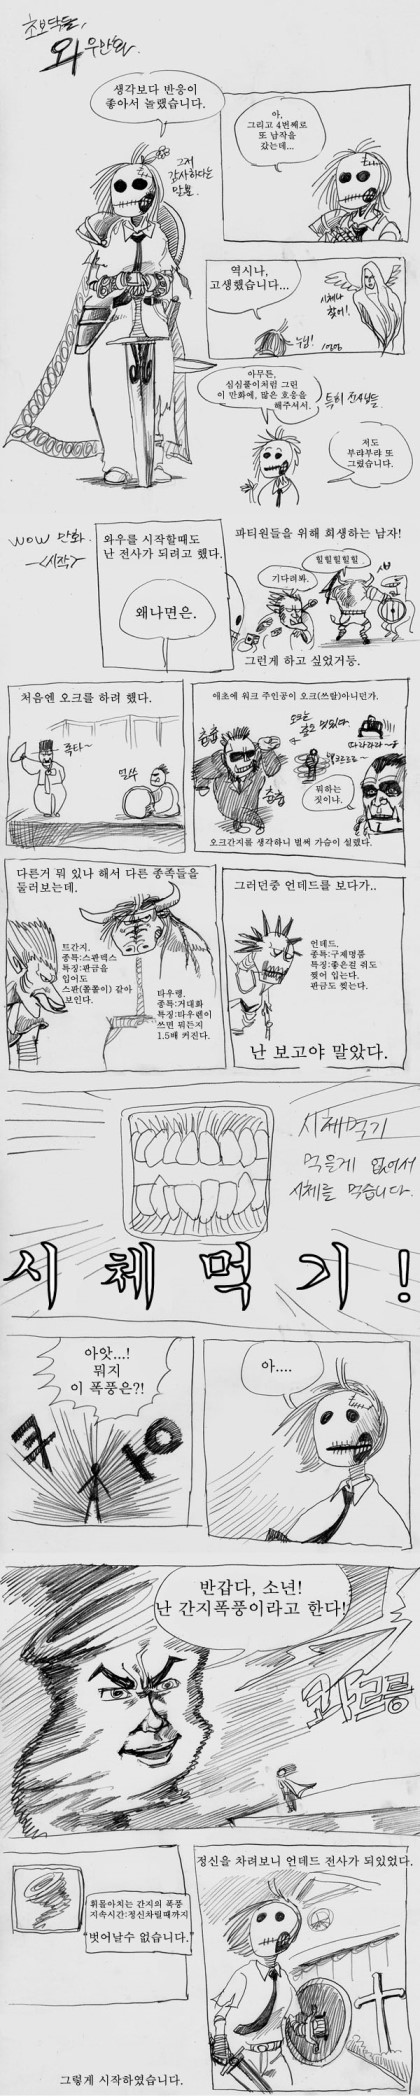 초보닥들,
와우만화.
생각보다 반응이
좋아서 놀랬습니다.
그저
감사하다는
말뿐.
아,
그리고 4번째로
또 납작을
갔는데...
역시나,
고생했습니다...
시체나
찾어!
누님!
아무튼,
심심풀이처럼 그린
이 만화에, 많은 호응을
해주셔서.
특히 전사님들.
저도
부랴부랴 또
그렸습니다.
WOW 만화.
<시작>
와우를 시작할때도
난 전사가 되려고 했다.
왜냐면은.
파티원들을 위해 희생하는 남자!
기다려봐.
힐힐힐힐힐
그런게 하고 싶었거든.
처음엔 오크를 하려 했다.
애초에 워크 주인공이 오크(쓰랄)아니던가.
춤춤
춤춤
뭐하는
짓이냐.
오크간지를 생각하니 벌써 가슴이 설렜다.
다른거 뭐 있나 해서 다른 종족들을
둘러보는데.
트간지.
종특:스판텍스
특징:판금을
입어도
스판(쫄쫄이) 같아
보인다.
타우렝.
종특:거대화
특징:타우렌이
쓰면 뭐든지
1.5배 커진다.
그러던중 언데드를 보다가..
언데드.
종특:구제명품
특징:좋은걸 줘도
찢어 입는다.
판금도 찢는다.
난 보고야 말았다.
시체먹기
먹을게 없어서
시체를 먹습니다.
시체먹기!
아앗...!
뭐지
이 폭풍은?!
아....
반갑다, 소년!
난 간지폭풍이라고 한다!
콰르릉
휘몰아치는 간지의 폭풍
지속시간:정신차릴때까지
"벗어날수 없습니다."
정신을 차려보니 언데드 전사가 되있었다.
그렇게 시작하였습니다.